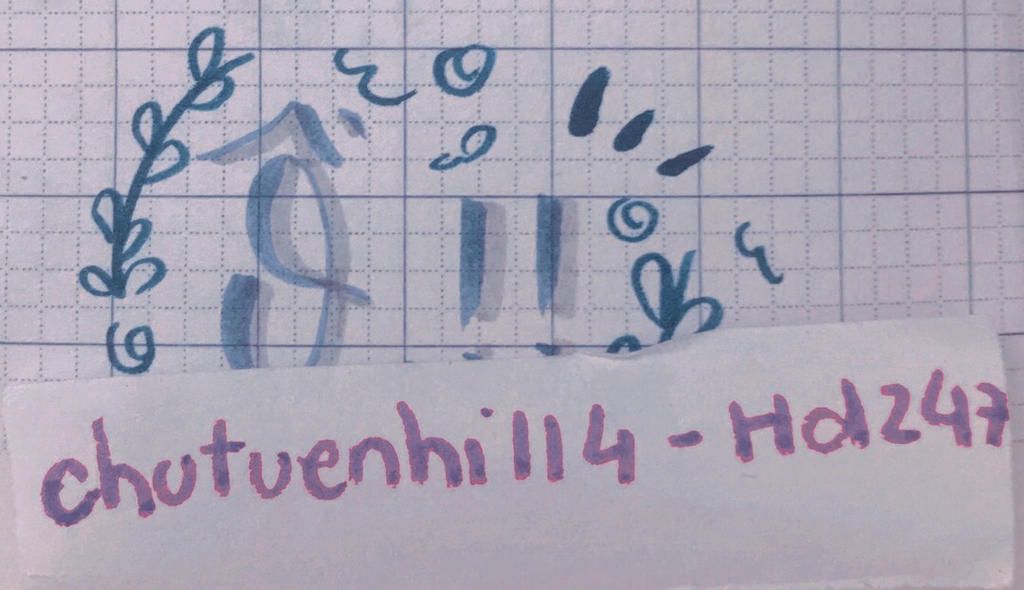 chutuenhi114 - Hd247